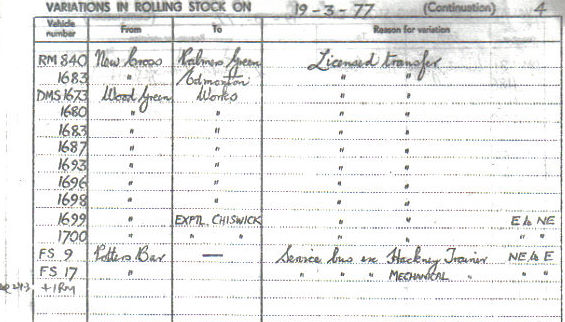 VARIATIONS IN ROLLING STOCK ON 19-3-77 (Continuation) 4
Vehicle number From To Reason for variation
RM 840 New Cross Palmers Green Licensed transfer
1683 " Edmonton " "
DMS 1673 Wood Green Works " "
1680 " " " "
1683 " " " "
1687 " " " "
1693 " " " "
1696 " " " "
1698 " " " "
1699 " EXPTL. CHISWICK " " E to NE
1700 " " " " " " "
FS 9 Potters Bar — Service bus ex Hackney Trainer NE to E
FS 17 " " " " MECHANICAL " " "